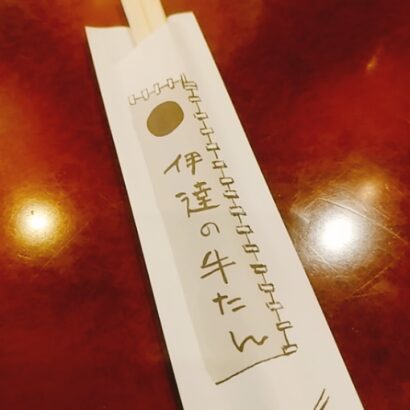 伊達の牛たん